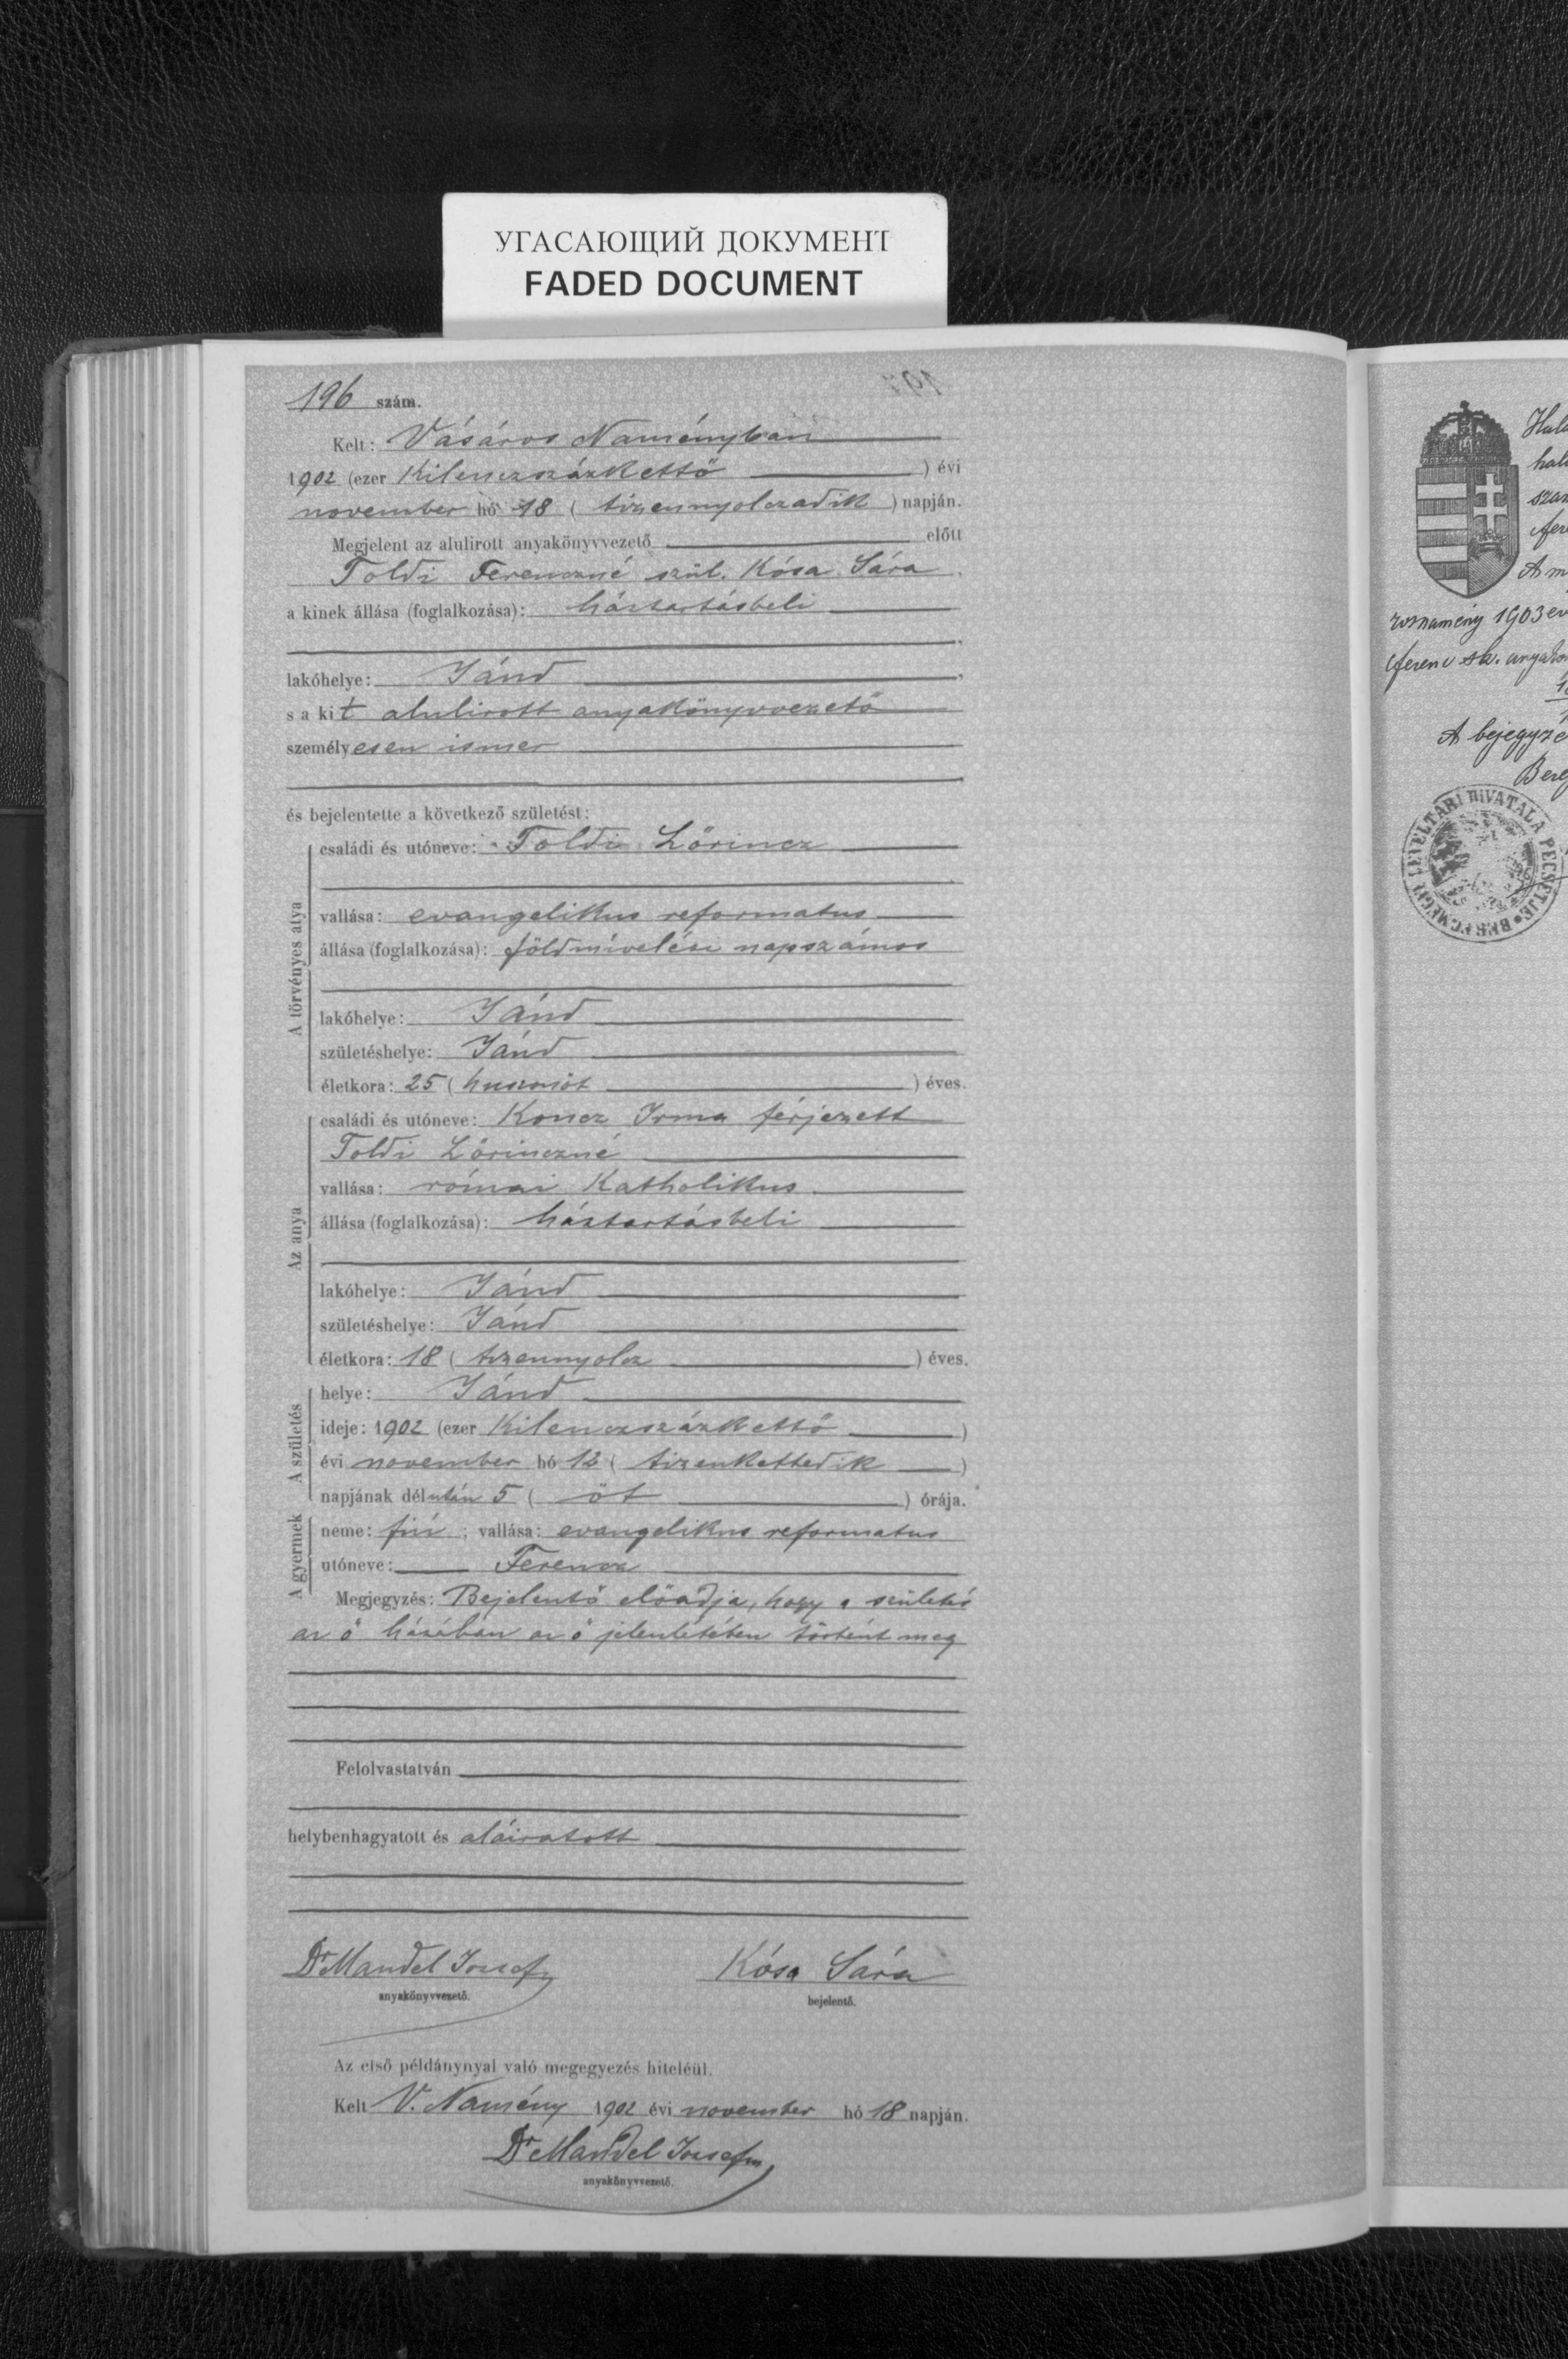 УГАСАЮЩИЙ ДОКУМЕНТ
FADED DOCUMENT
196 szám.
Kelt: Vásáros Naményban
1902 (ezer kilenczszázkettő ) évi
november hó 18 ( tizennyolczadik ) napján.
Megjelent az alulirott anyakönyvvezető előtt
Toldi Ferenczné szül. Kósa Sára
a kinek állása (foglalkozása): háztartásbeli
lakóhelye: Jánd
s a kit alulirott anyakönyvvezető
személyesen ismer
és bejelentette a következő születést:
A törvényes atya
családi és utóneve: Toldi Lőrincz
vallása: evangelikus reformatus
állása (foglalkozása): földmivelési napszámos
lakóhelye: Jánd
születéshelye: Jánd
életkora: 25 ( huszonöt ) éves.
Az anya
családi és utóneve: Koncz Irma férjezett
Toldi Lőrinczné
vallása: római katholikus
állása (foglalkozása): háztartásbeli
lakóhelye: Jánd
születéshelye: Jánd
életkora: 18 ( tizennyolcz ) éves.
A születés
helye: Jánd
ideje: 1902 (ezer kilenczszázkettő )
évi november hó 12 ( tizenkettedik )
napjának délután 5 ( öt ) órája.
A gyermek
neme: fiú ; vallása: evangelikus reformatus
utóneve: Ferencz
Megjegyzés: Bejelentő előadja, hogy a születés
az ő házában az ő jelenlétében történt meg
Felolvastatván
helybenhagyatott és aláiratott
Dr Mandel József Kósa Sára
anyakönyvvezető. bejelentő.
Az első példánynyal való megegyezés hiteléül.
Kelt V. Namény 1902 évi november hó 18 napján.
Dr Mandel József
anyakönyvvezető.
A m
rosnamény 1903 év
Ferenc sk.
A bejegyzé
Bereg
LEVÉLTÁRI HIVATALA PECSÉTJE